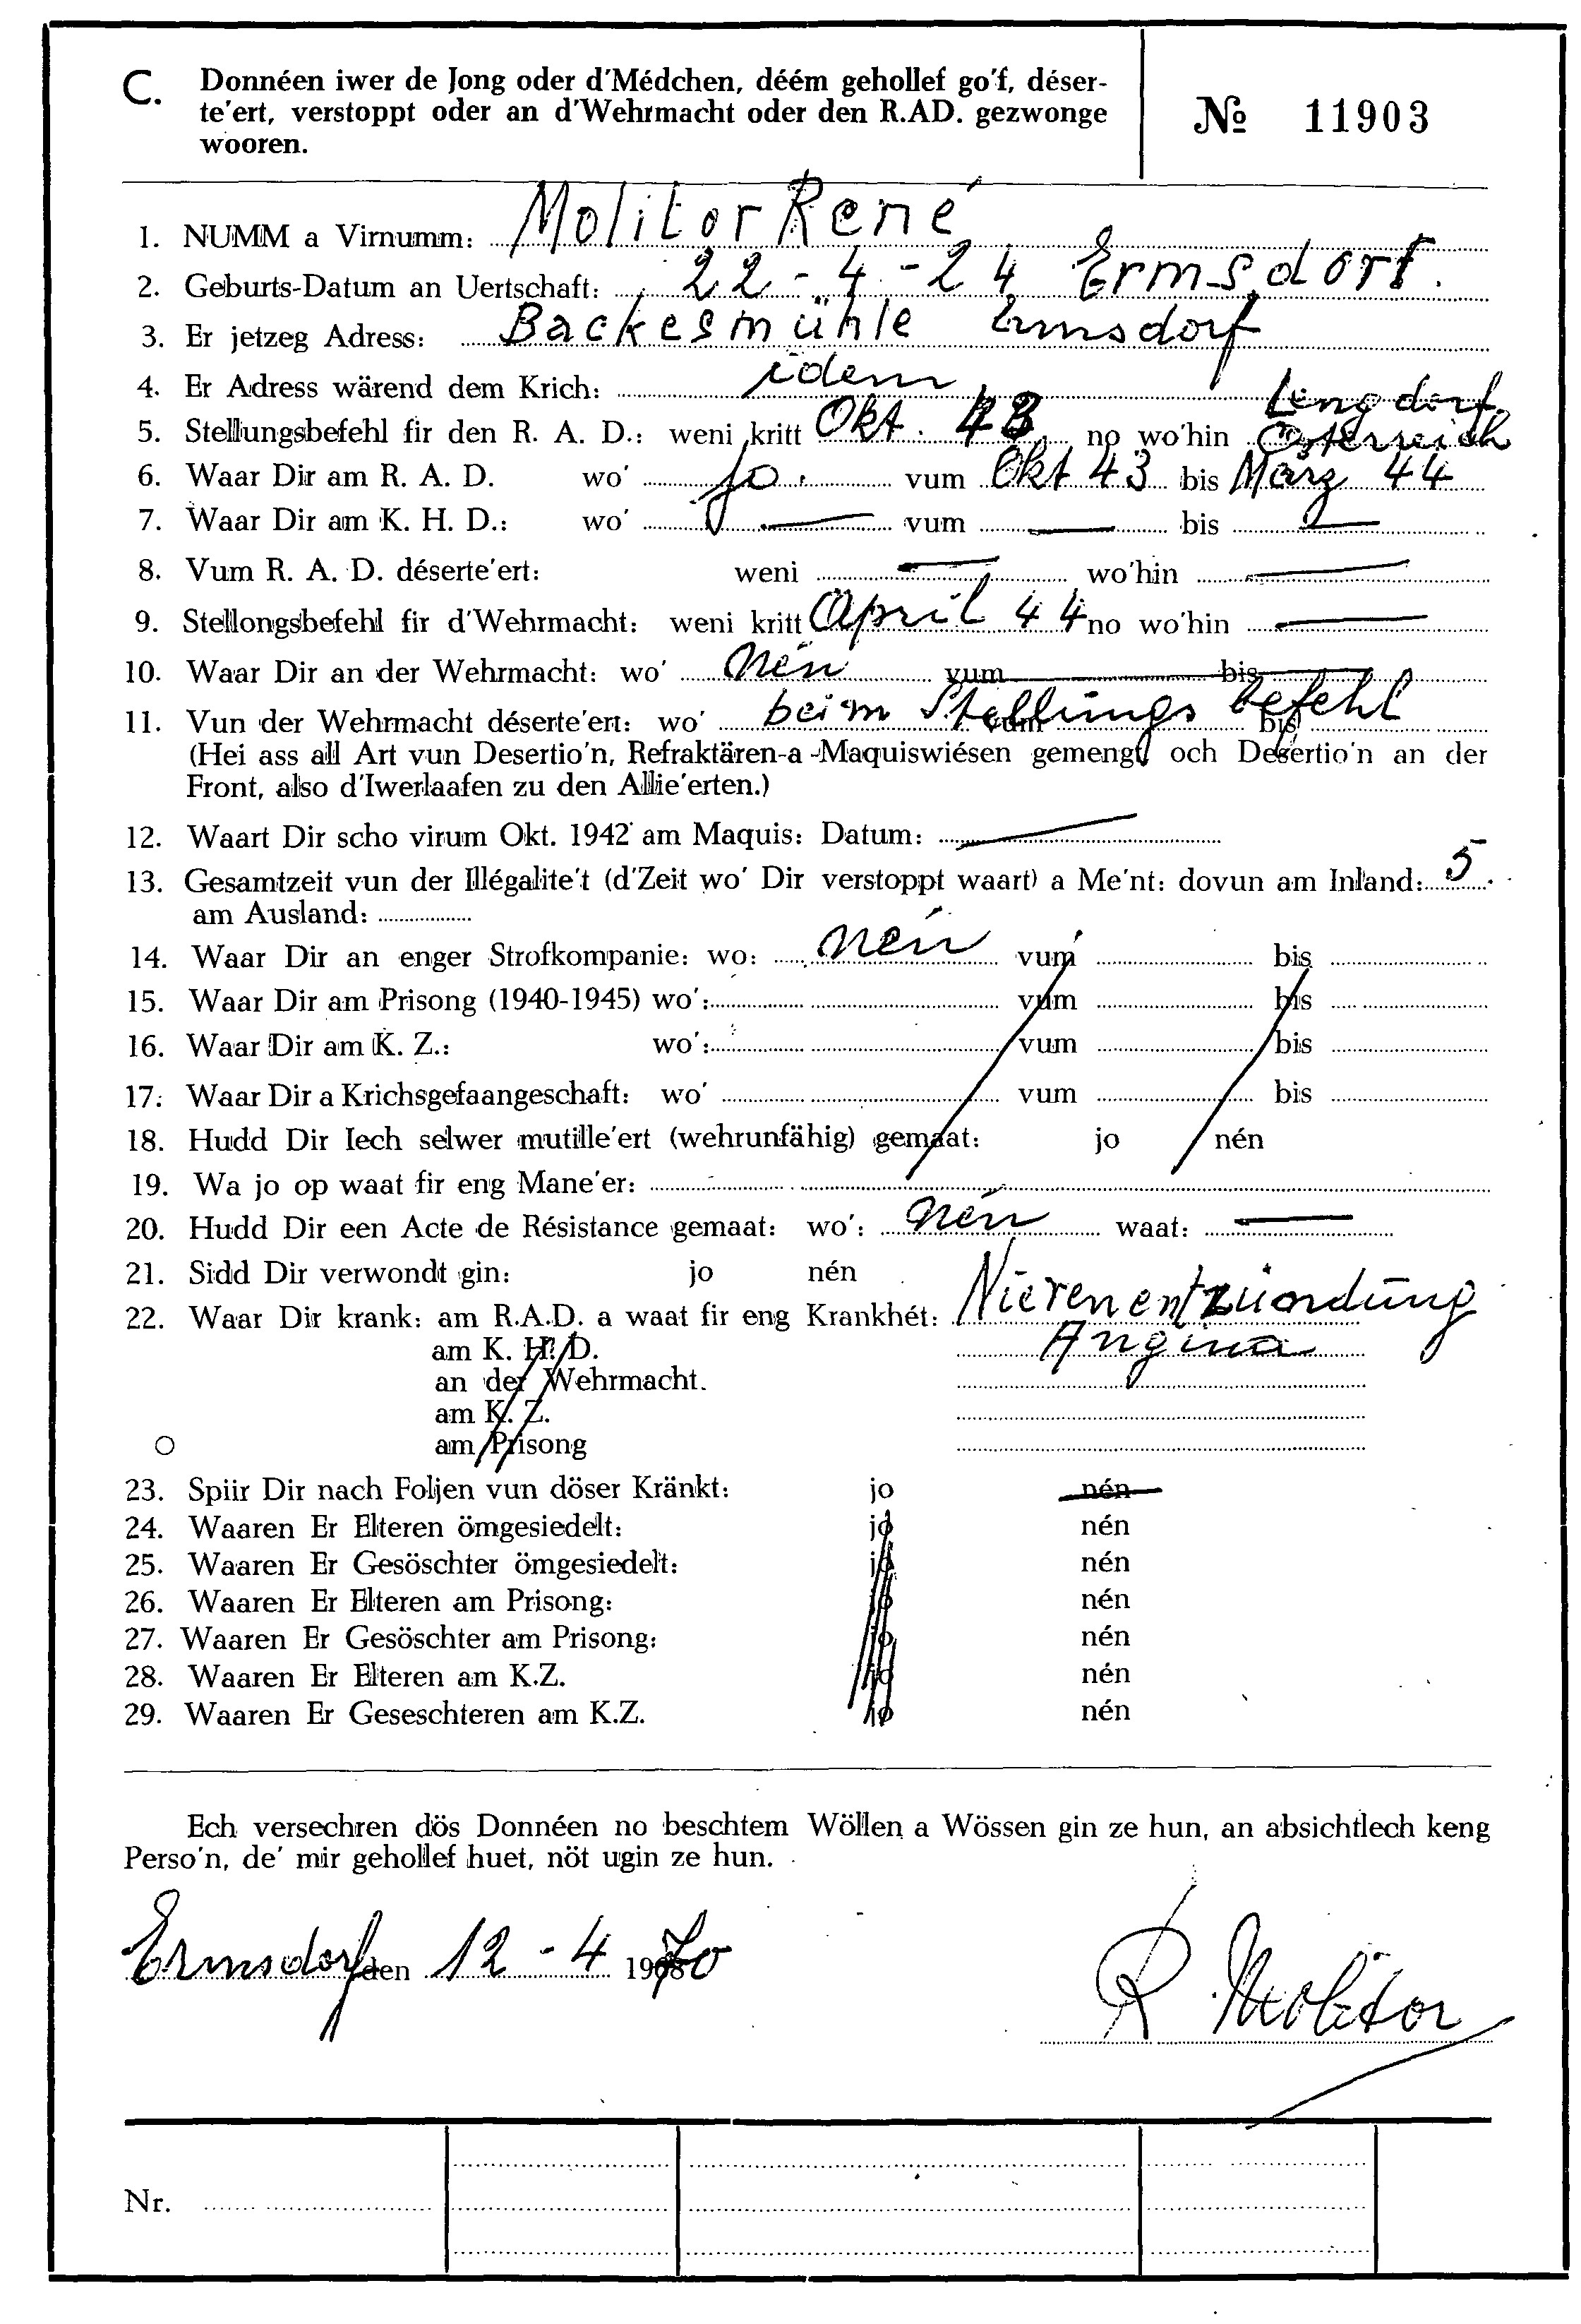 C. Donnéen iwer de Jong oder d'Médchen, déém gehollef go'f, déser-
te'ert, verstoppt oder an d'Wehrmacht oder den R.AD. gezwonge
wooren.
№ 11903
1. NUMM a Virnumm: Molitor René
2. Geburts-Datum an Uertschaft: 22-4-24 Ermsdorf.
3. Er jetzeg Adress: Backesmühle Ermsdorf
4. Er Adress wärend dem Krich: idem
5. Stellungsbefehl fir den R. A. D.: weni kritt Okt. 43 no wo'hin Lengdorf Österreich
6. Waar Dir am R. A. D. wo' jo. vum Okt 43 bis März 44
7. Waar Dir am K. H. D.: wo' — vum — bis —
8. Vum R. A. D. déserte'ert: weni — wo'hin —
9. Stellongsbefehl fir d'Wehrmacht: weni kritt April 44 no wo'hin —
10. Waar Dir an der Wehrmacht: wo' nén vum bis
11. Vun der Wehrmacht déserte'ert: wo' beim Stellungsbefehl vum bis
(Hei ass all Art vun Desertio'n, Refraktären-a -Maquiswiésen gemengt, och Desertio'n an der
Front, also d'Iwerlaafen zu den Allie'erten.)
12. Waart Dir scho virum Okt. 1942 am Maquis: Datum: —
13. Gesamtzeit vun der Illégalite't (d'Zeit wo' Dir verstoppt waart) a Me'nt: dovun am Inland: 5
am Ausland:
14. Waar Dir an enger Strofkompanie: wo: nén vum bis
15. Waar Dir am Prisong (1940-1945) wo': vum bis
16. Waar Dir am K. Z.: wo': vum bis
17. Waar Dir a Krichsgefaangeschaft: wo' vum bis
18. Hudd Dir Iech selwer mutille'ert (wehrunfähig) gemaat: jo nén
19. Wa jo op waat fir eng Mane'er:
20. Hudd Dir een Acte de Résistance gemaat: wo': nén waat: —
21. Sidd Dir verwondt gin: jo nén
22. Waar Dir krank: am R.A.D. a waat fir eng Krankhét: Nierenentzündung
am K. H. D. Angina
an der Wehrmacht.
am K. Z.
am Prisong
23. Spiir Dir nach Foljen vun döser Kränkt: jo nén
24. Waaren Er Elteren ömgesiedelt: jo nén
25. Waaren Er Gesöschter ömgesiedelt: jo nén
26. Waaren Er Elteren am Prisong: jo nén
27. Waaren Er Gesöschter am Prisong: jo nén
28. Waaren Er Elteren am K.Z. jo nén
29. Waaren Er Geseschteren am K.Z. jo nén
Ech versechren dös Donnéen no beschtem Wöllen a Wössen gin ze hun, an absichtlech keng
Perso'n, de' mir gehollef huet, nöt ugin ze hun.
Ermsdorf den 12-4 1968 70
R. Molitor
Nr.